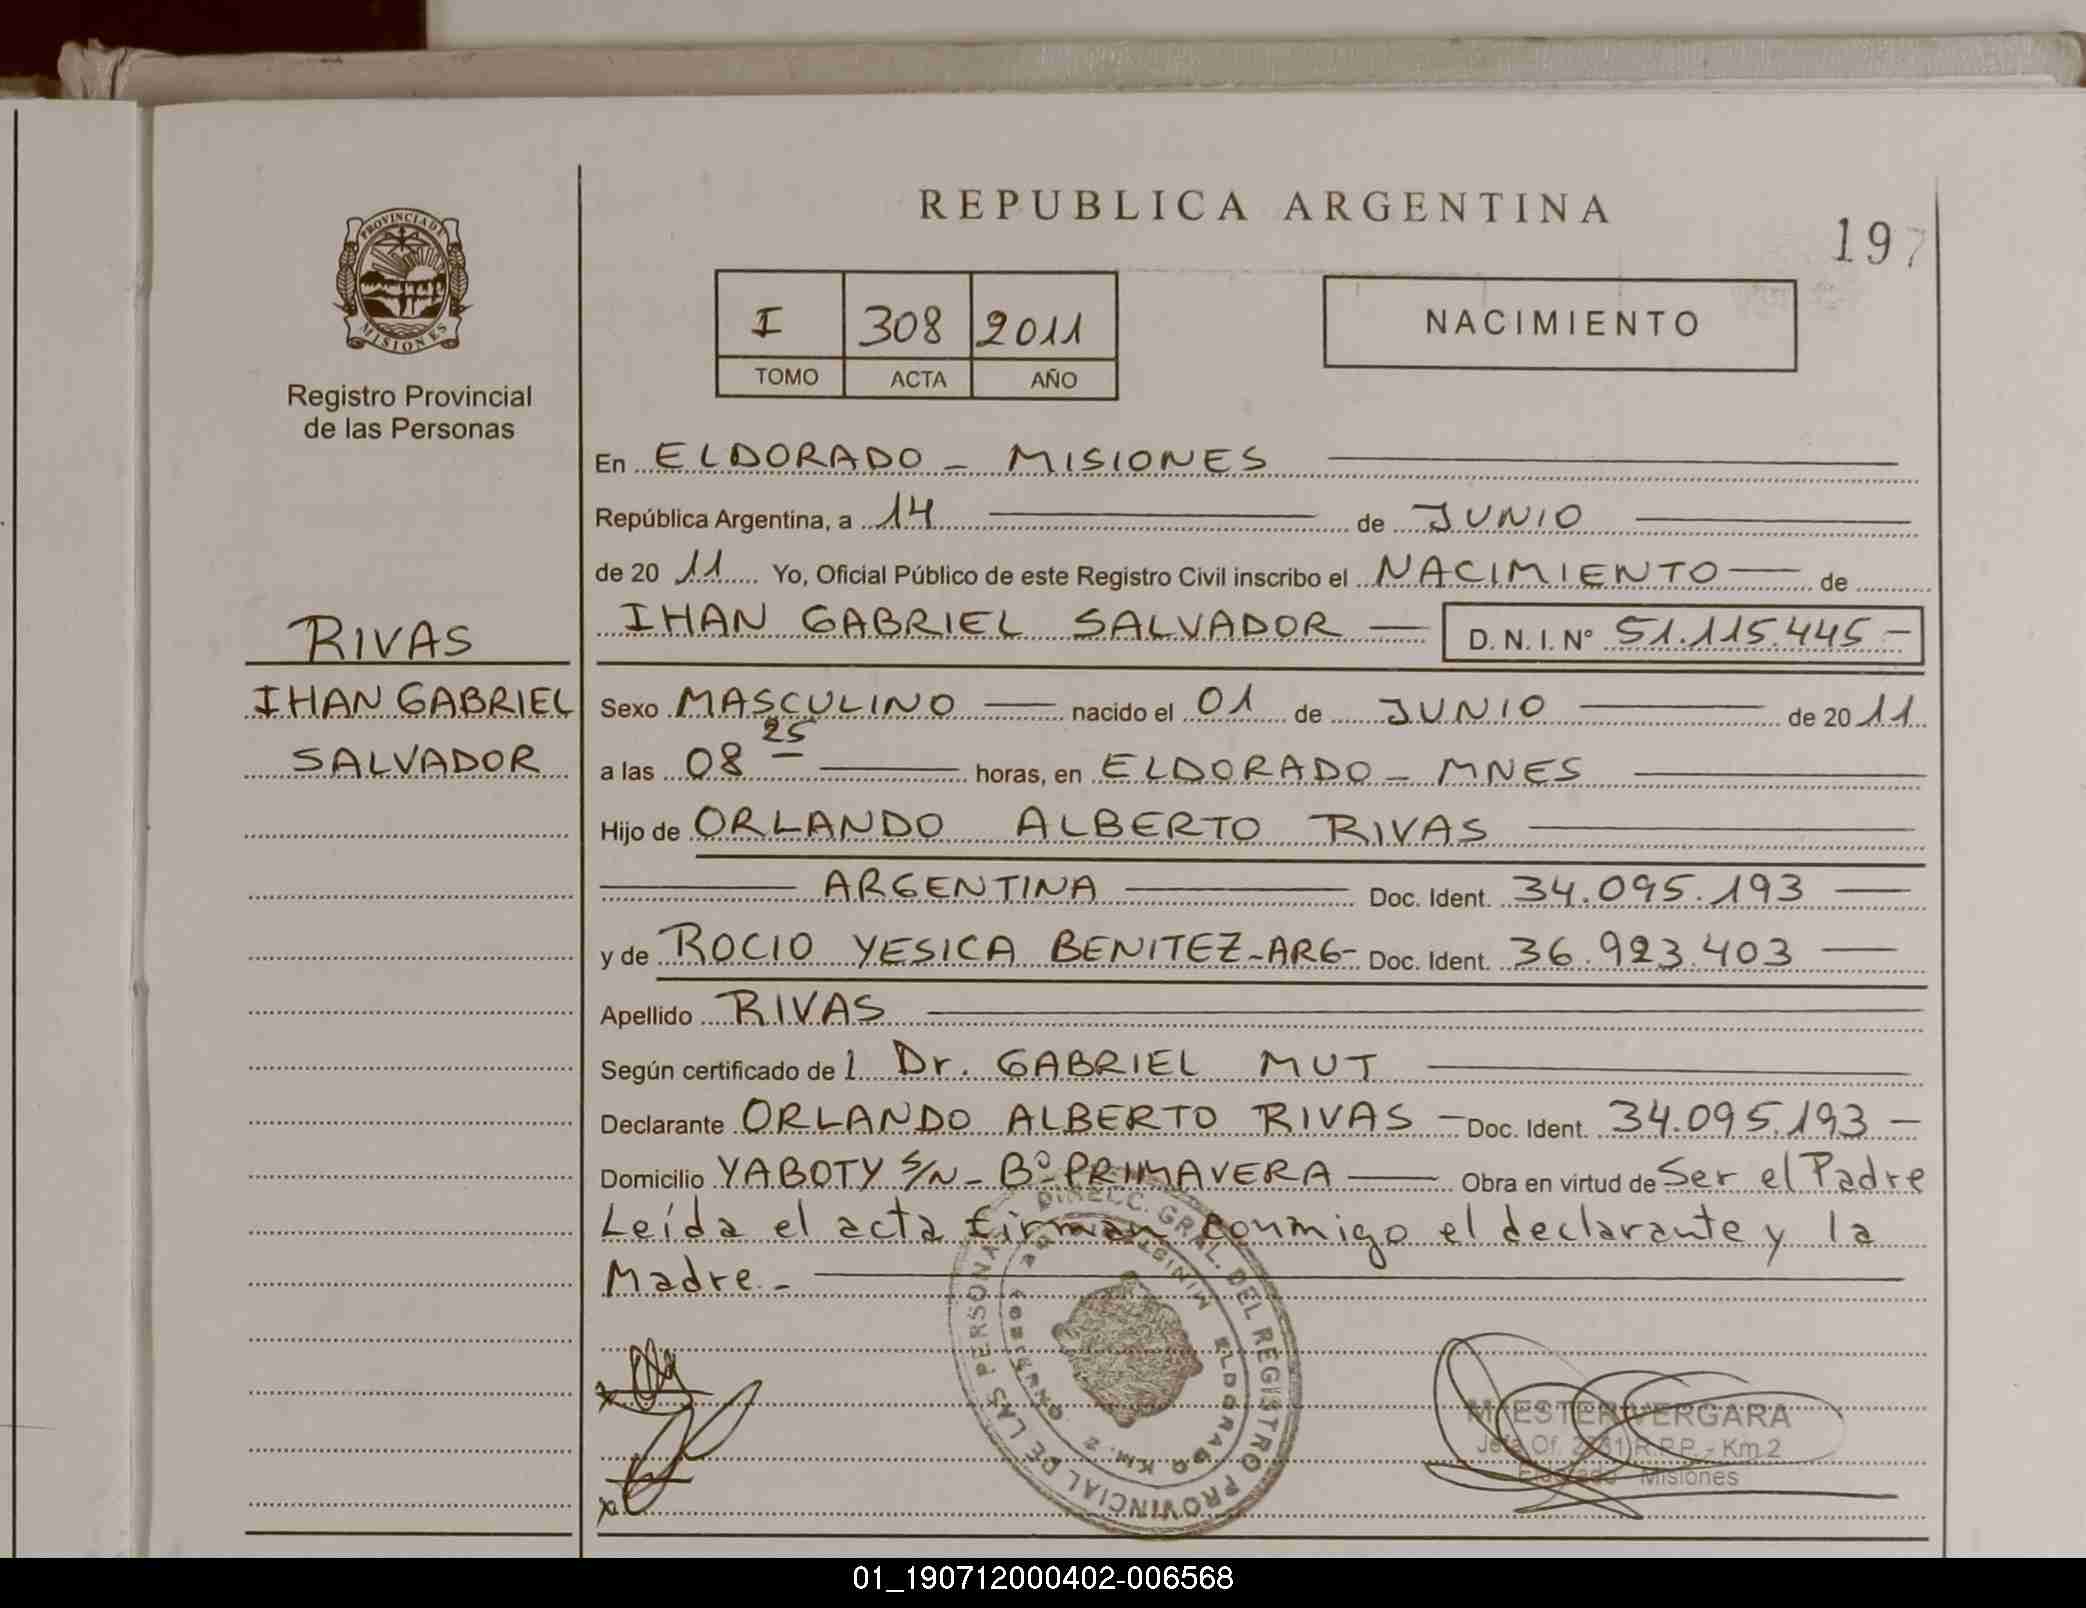 REPUBLICA ARGENTINA
197
PROVINCIA DE
MISIONES
Registro Provincial
de las Personas
I 308 2011
TOMO ACTA AÑO
NACIMIENTO
En ELDORADO - MISIONES
República Argentina, a 14 de JUNIO
de 20 11 Yo, Oficial Público de este Registro Civil inscribo el NACIMIENTO de
IHAN GABRIEL SALVADOR D. N. I. N° 51.115.445 -
RIVAS
IHAN GABRIEL
SALVADOR
Sexo MASCULINO nacido el 01 de JUNIO de 20 11
a las 08 25 horas, en ELDORADO - MNES
Hijo de ORLANDO ALBERTO RIVAS
ARGENTINA Doc. Ident. 34.095.193
y de ROCIO YESICA BENITEZ-ARG- Doc. Ident. 36.923.403
Apellido RIVAS
Según certificado de l Dr. GABRIEL MUT
Declarante ORLANDO ALBERTO RIVAS - Doc. Ident. 34.095.193 -
Domicilio YABOTY S/N - B° PRIMAVERA Obra en virtud de Ser el Padre
Leída el acta firman conmigo el declarante y la
Madre -
DIRECC. GRAL. DEL REGISTRO PROVINCIAL DE LAS PERSONAS
ELDORADO KM. 2
VERGARA
R.P.P. - Km 2
Misiones
01_190712000402-006568